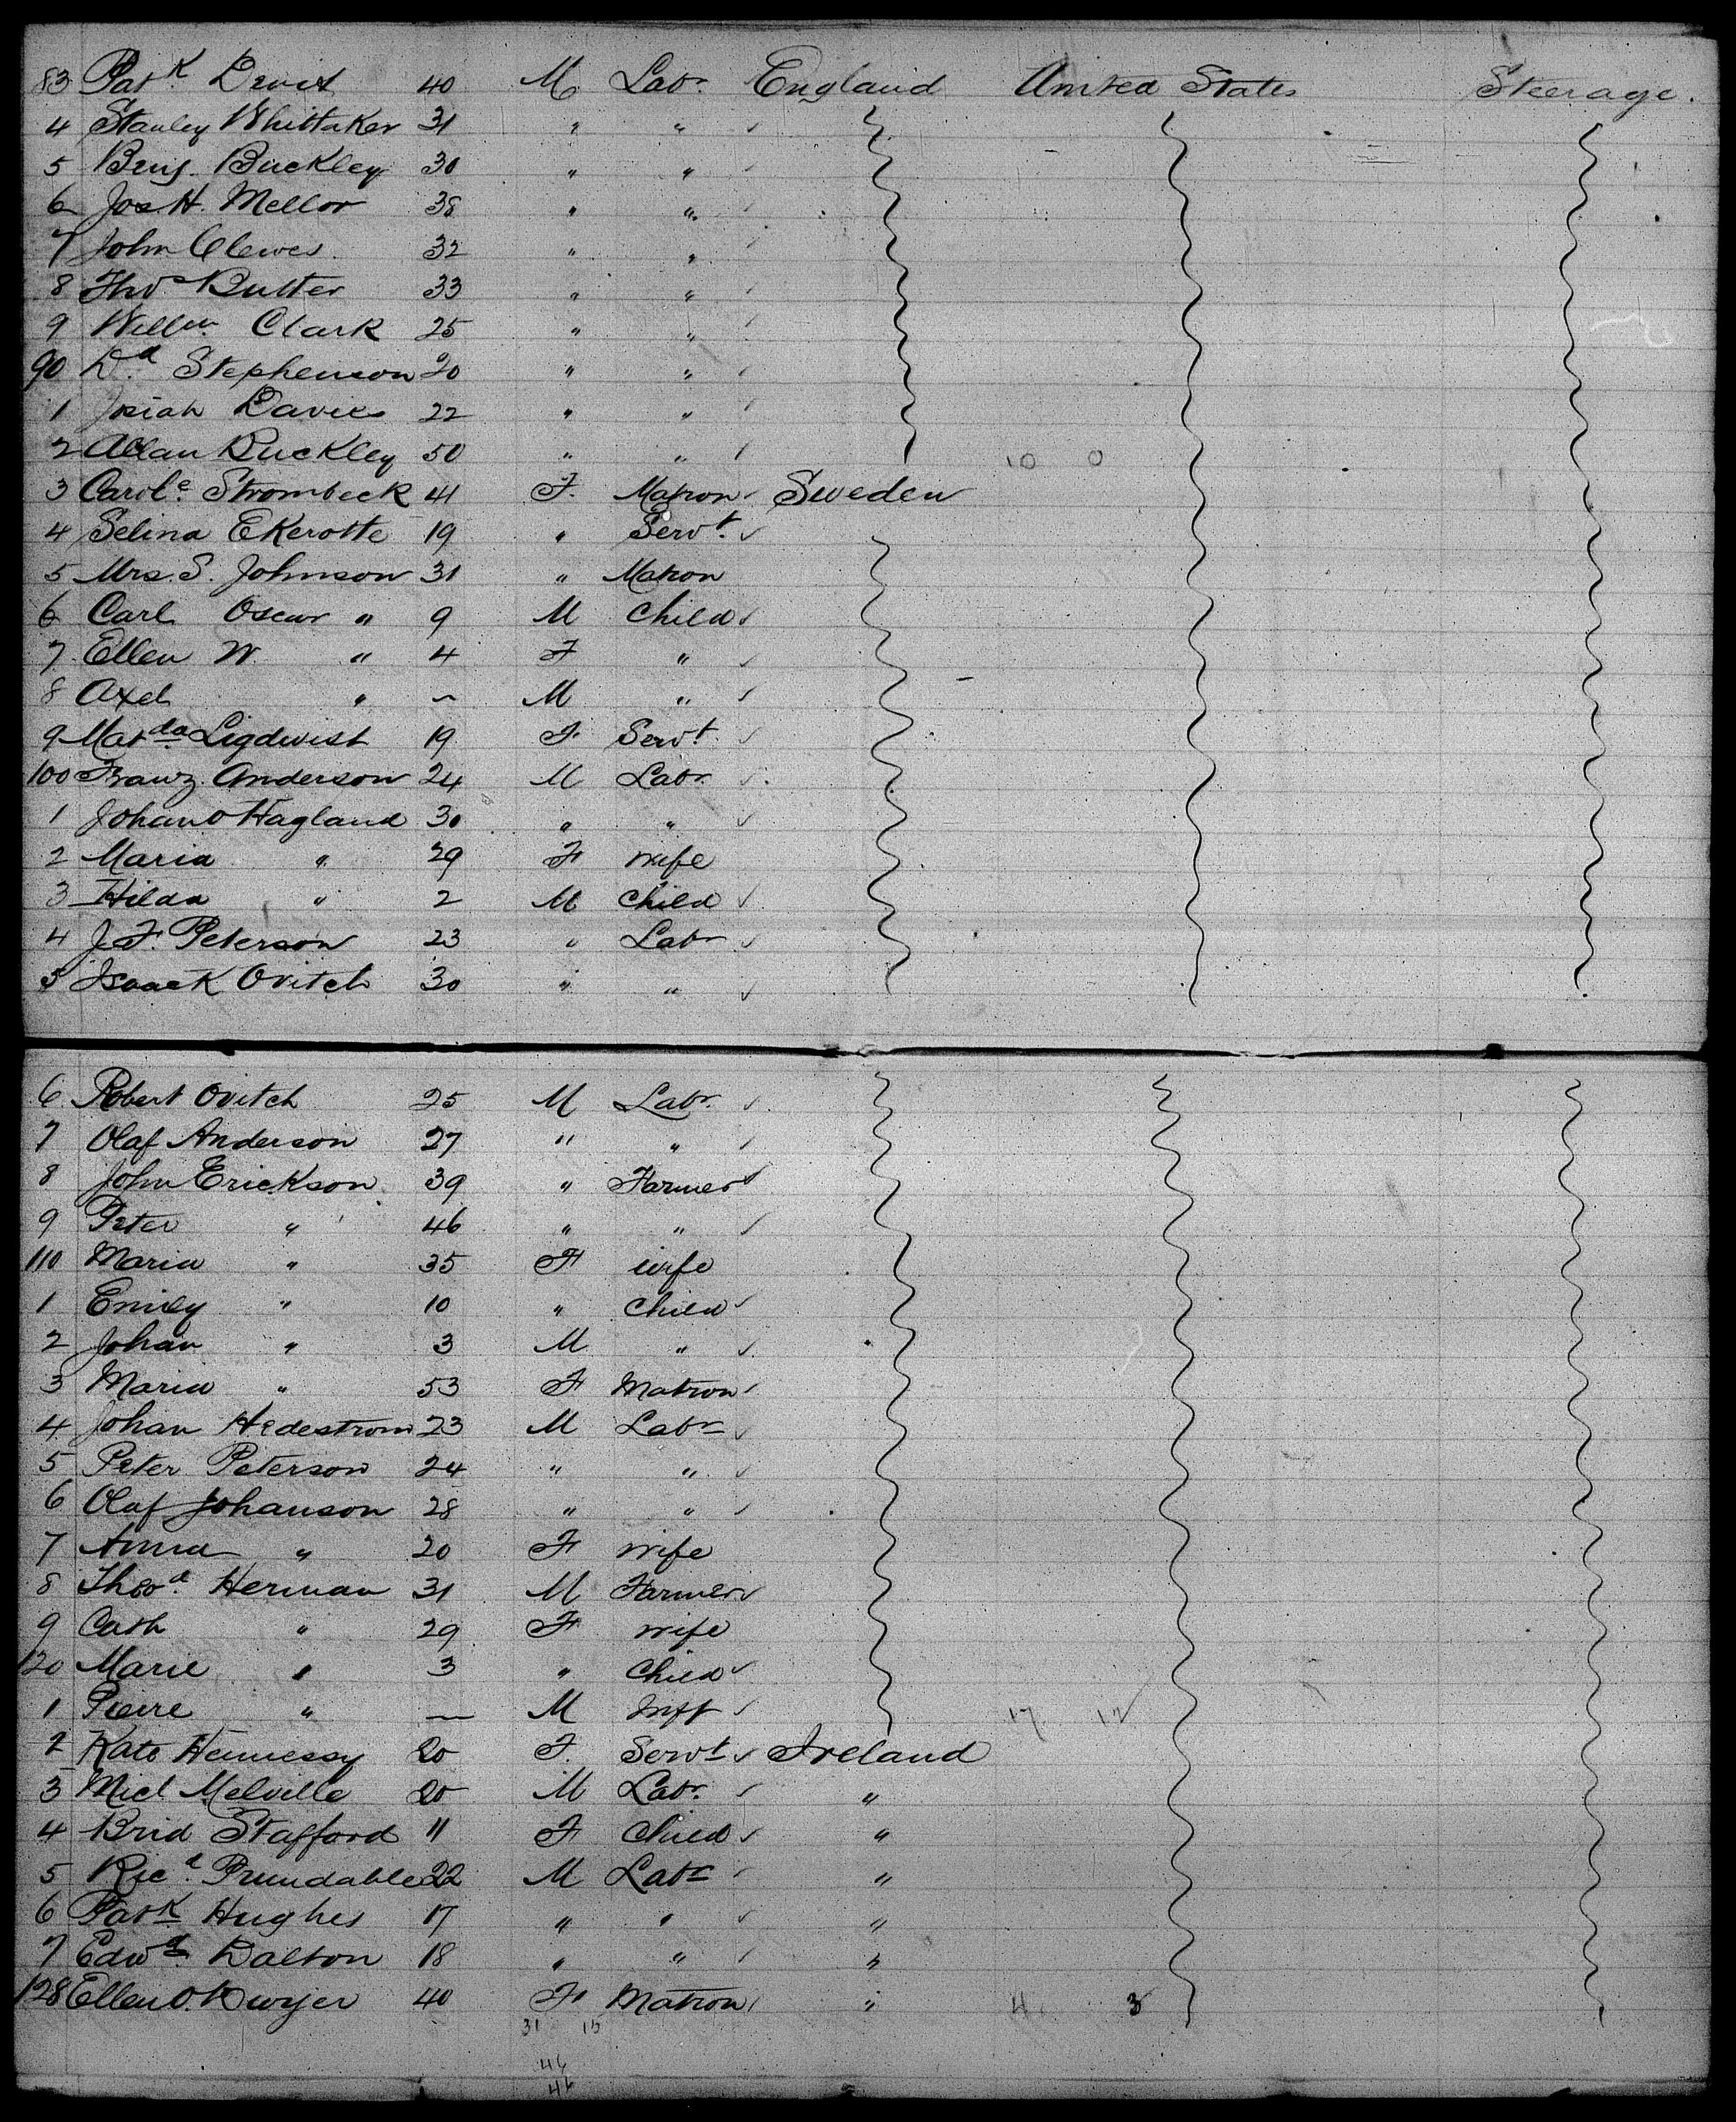 83 Patk Devit 40 M Labr. England United States Steerage.
4 Stanley Whittaker 31 " " ✓
5 Benj. Buckley 30 " " ✓
6 Jos. H. Mellor 38 " " ✓
7 John Clewes 32 " " ✓
8 Thos Butter 33 " " ✓
9 Willm Clark 25 " " ✓
90 Dd Stephenson 20 " " ✓
1 Josiah Davies 22 " " ✓
2 Allan Buckley 50 " " ✓ 10 0
3 Carole. Strombeck 41 F. Matron ✓ Sweden
4 Selina Ekerotte 19 " Servt. ✓
5 Mrs. S. Johnson 31 " Matron
6 Carl Oscar " 9 M Child ✓
7 Ellen W. " 4 F " ✓
8 Axel " ~ M " ✓
9 Matda Ligdwist 19 F Servt. ✓
100 Franz Anderson 24 M Labr. ✓
1 Johan O Hagland 30 " " ✓
2 Maria " 29 F wife
3 Hilda " 2 M Child ✓
4 J. F. Peterson 23 " Labr ✓
5 Isaack Ovitch 30 " " ✓
6 Robert Ovitch 25 M Labr. ✓
7 Olaf Anderson 27 " " ✓
8 John Erickson 39 " Farmer ✓
9 Peter " 46 " " ✓
110 Maria " 35 F wife
1 Emily " 10 " Child ✓
2 Johan " 3 M " ✓
3 Maria " 53 F Matron ✓
4 Johan Hedestrom 23 M Labr ✓
5 Peter Peterson 24 " " ✓
6 Olaf Johanson 28 " " ✓
7 Anna " 20 F wife
8 Theod. Herman 31 M Farmer ✓
9 Cath " 29 F wife
120 Marie " 3 " Child ✓
1 Pierre " — M Inft ✓ 17 12
2 Kate Hennessy 20 F. Servt ✓ Ireland
3 Micl Melville 20 M Labr. ✓ "
4 Brid Stafford 11 F Child ✓ "
5 Ricd. Prundable 22 M Labr ✓ "
6 Patk Hughes 17 " " ✓ "
7 Edwd. Dalton 18 " " ✓ "
128 Ellen O. Dwyer 40 F Matron ✓ " 4 3
31 15
46
46